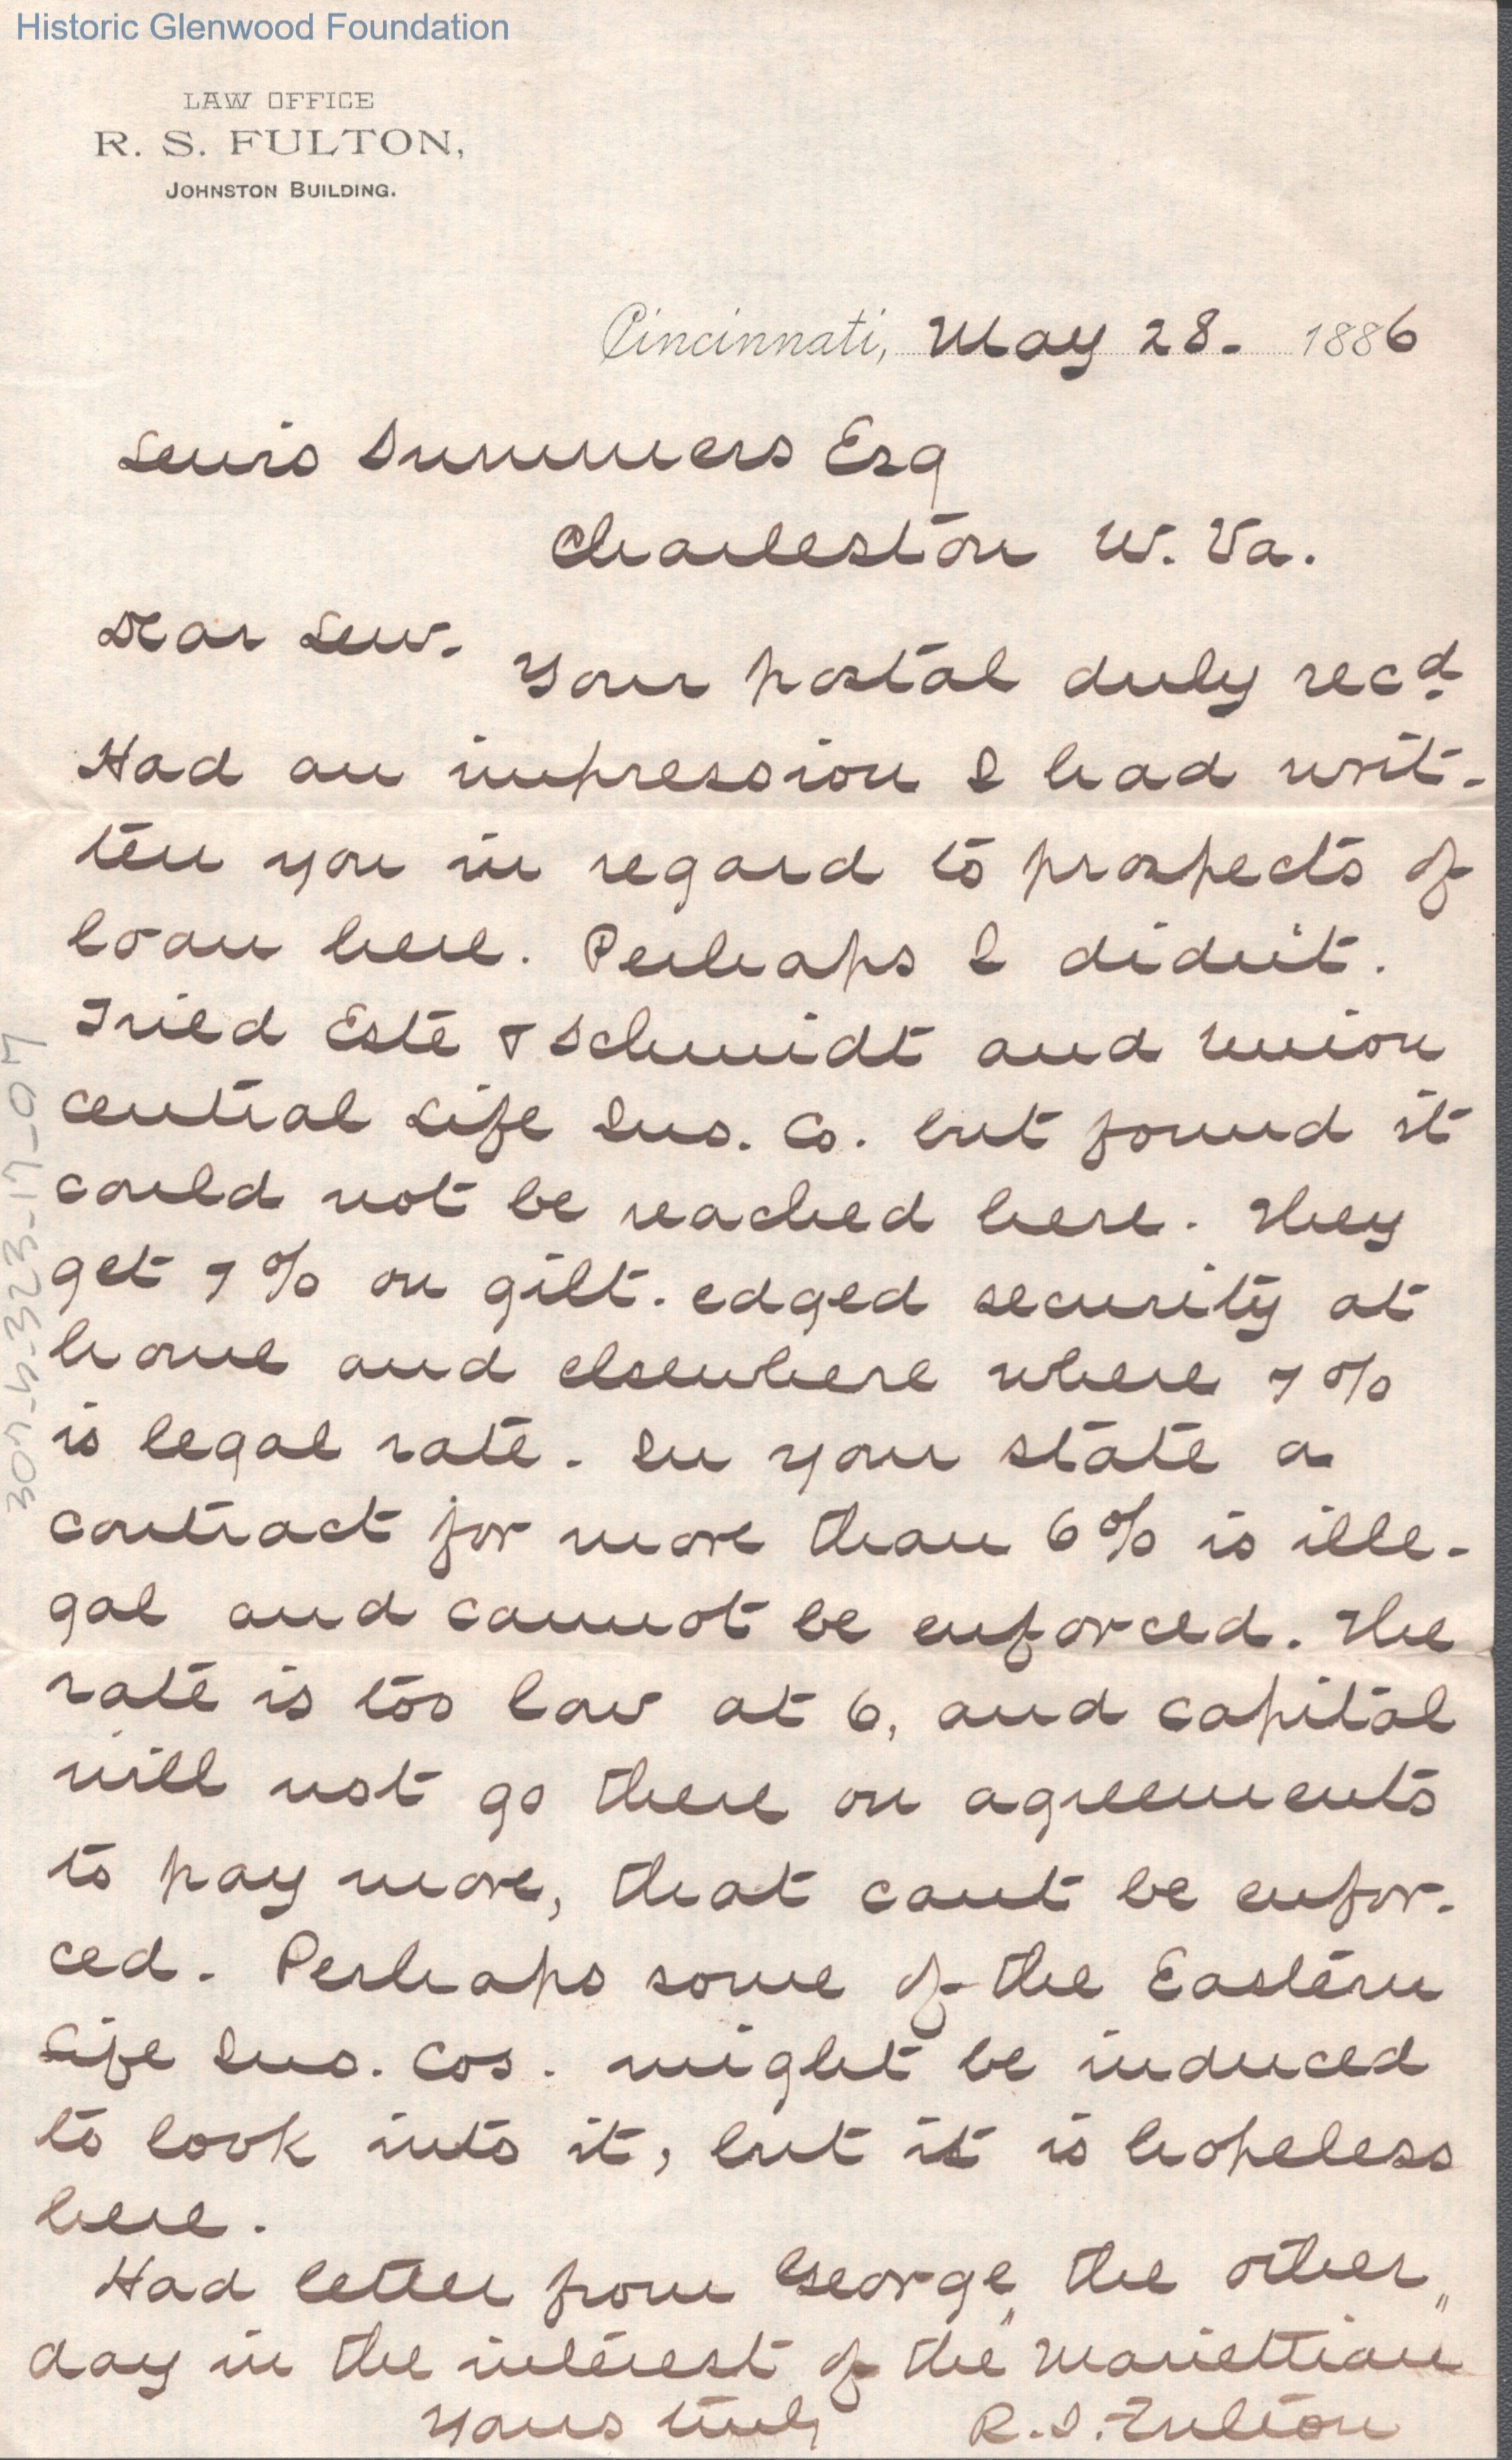 Historic Glenwood Foundation
LAW OFFICE
R. S. FULTON,
JOHNSTON BUILDING.
Cincinnati, May 28. 1886
Lewis Summers Esq
Charleston W. Va.
Dear Lew.
Your postal duly recd
Had an impression I had writ-
ten you in regard to prospects of
loan here. Perhaps I didn't.
Tried Este & Schmidt and Union
Central Life Ins. Co. but found it
could not be reached here. They
get 7% on gilt-edged security at
home and elsewhere where 7%
is legal rate. In your state a
contract for more than 6% is ille-
gal and cannot be enforced. The
rate is too low at 6, and capital
will not go there on agreements
to pay more, that cant be enfor-
ced. Perhaps some of the Eastern
Life Ins. Cos. might be induced
to look into it, but it is hopeless
here.
Had letter from George the other
day in the interest of the "Mariettian"
Yours truly R. S. Fulton
307-5-323-17-07